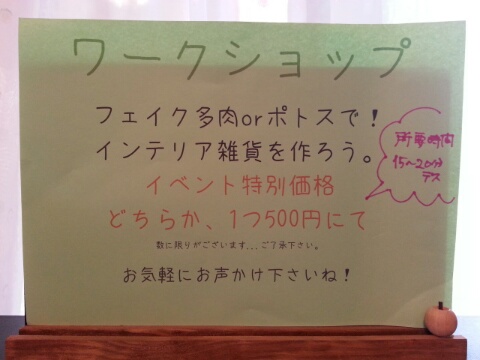 ワークショップ
フェイク多肉orポトスで!
インテリア雑貨を作ろう。
イベント特別価格
どちらか、1つ500円にて
数に限りがございます...ご了承下さい。
お気軽にお声かけ下さいね!
所要時間
15〜20分
デス